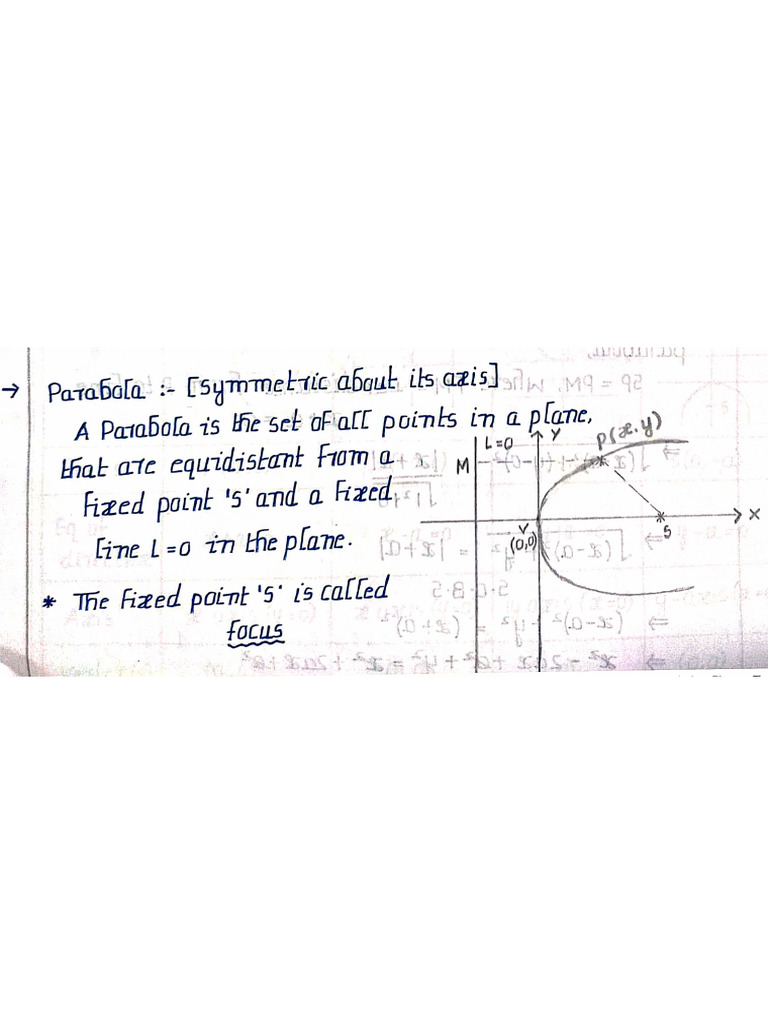 → Parabola :- [Symmetric about its axis]
A Parabola is the set of all points in a plane,
that are equidistant from a
fixed point 's' and a fixed
line L=0 in the plane.
* The fixed point 's' is called
focus
L=0
Y
P(x,y)
M
X
V
(0,0)
S